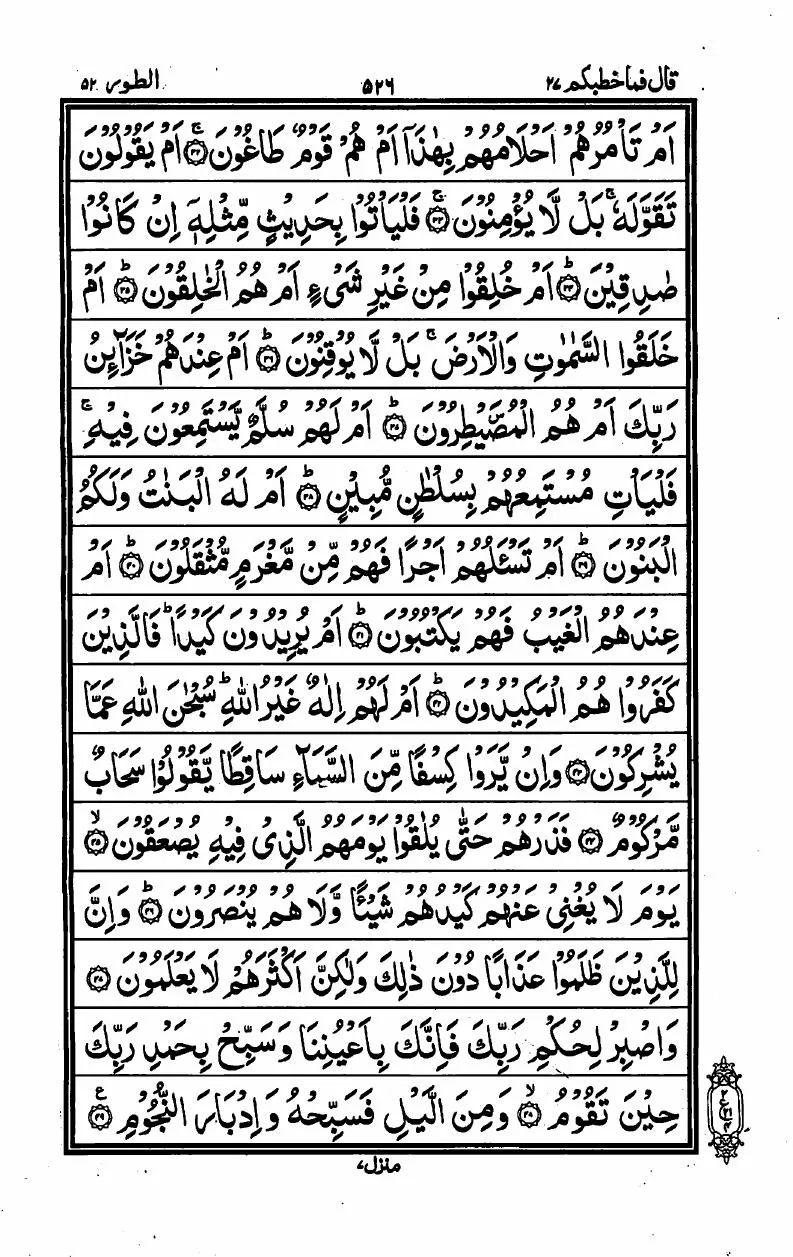 قال فما خطبكم ٢٧ ٥٢٦ الطور ٥٢
اَمْ تَاْمُرُهُمْ اَحْلَامُهُمْ بِهٰذَاۤ اَمْ هُمْ قَوْمٌ طَاغُوْنَ ۚ‏﴿۳۲﴾ اَمْ يَقُوْلُوْنَ
تَقَوَّلَهٗ ۚ بَلْ لَّا يُؤْمِنُوْنَ ۚ‏﴿۳۳﴾ فَلْيَاْتُوْا بِحَدِيْثٍ مِّثْلِهٖۤ اِنْ كَانُوْا
صٰدِقِيْنَ ؕ‏﴿۳۴﴾ اَمْ خُلِقُوْا مِنْ غَيْرِ شَىْءٍ اَمْ هُمُ الْخٰلِقُوْنَ ؕ‏﴿۳۵﴾ اَمْ
خَلَقُوا السَّمٰوٰتِ وَالْاَرْضَ ۚ بَلْ لَّا يُوْقِنُوْنَ ؕ‏﴿۳۶﴾ اَمْ عِنْدَهُمْ خَزَآئِنُ
رَبِّكَ اَمْ هُمُ الْمُصَۜيْطِرُوْنَ ؕ‏﴿۳۷﴾ اَمْ لَهُمْ سُلَّمٌ يَّسْتَمِعُوْنَ فِيْهِ ۚ
فَلْيَاْتِ مُسْتَمِعُهُمْ بِسُلْطٰنٍ مُّبِيْنٍ ؕ‏﴿۳۸﴾ اَمْ لَهُ الْبَنٰتُ وَلَكُمُ
الْبَنُوْنَ ؕ‏﴿۳۹﴾ اَمْ تَسْئَلُهُمْ اَجْرًا فَهُمْ مِّنْ مَّغْرَمٍ مُّثْقَلُوْنَ ؕ‏﴿۴۰﴾ اَمْ
عِنْدَهُمُ الْغَيْبُ فَهُمْ يَكْتُبُوْنَ ؕ‏﴿۴۱﴾ اَمْ يُرِيْدُوْنَ كَيْدًا ؕ فَالَّذِيْنَ
كَفَرُوْا هُمُ الْمَكِيْدُوْنَ ؕ‏﴿۴۲﴾ اَمْ لَهُمْ اِلٰهٌ غَيْرُ اللّٰهِ ؕ سُبْحٰنَ اللّٰهِ عَمَّا
يُشْرِكُوْنَ ﴿۴۳﴾ وَاِنْ يَّرَوْا كِسْفًا مِّنَ السَّمَآءِ سَاقِطًا يَّقُوْلُوْا سَحَابٌ
مَّرْكُوْمٌ ﴿۴۴﴾ فَذَرْهُمْ حَتّٰى يُلٰقُوْا يَوْمَهُمُ الَّذِىْ فِيْهِ يُصْعَقُوْنَ ۙ‏﴿۴۵﴾
يَوْمَ لَا يُغْنِىْ عَنْهُمْ كَيْدُهُمْ شَيْئًا وَّلَا هُمْ يُنْصَرُوْنَ ؕ‏﴿۴۶﴾ وَاِنَّ
لِلَّذِيْنَ ظَلَمُوْا عَذَابًا دُوْنَ ذٰلِكَ وَلٰكِنَّ اَكْثَرَهُمْ لَا يَعْلَمُوْنَ ﴿۴۷﴾
وَاصْبِرْ لِحُكْمِ رَبِّكَ فَاِنَّكَ بِاَعْيُنِنَا وَسَبِّحْ بِحَمْدِ رَبِّكَ
حِيْنَ تَقُوْمُ ۙ‏﴿۴۸﴾ وَمِنَ الَّيْلِ فَسَبِّحْهُ وَاِدْبَارَ النُّجُوْمِ ﴿۴۹﴾ ع
منزل ٧